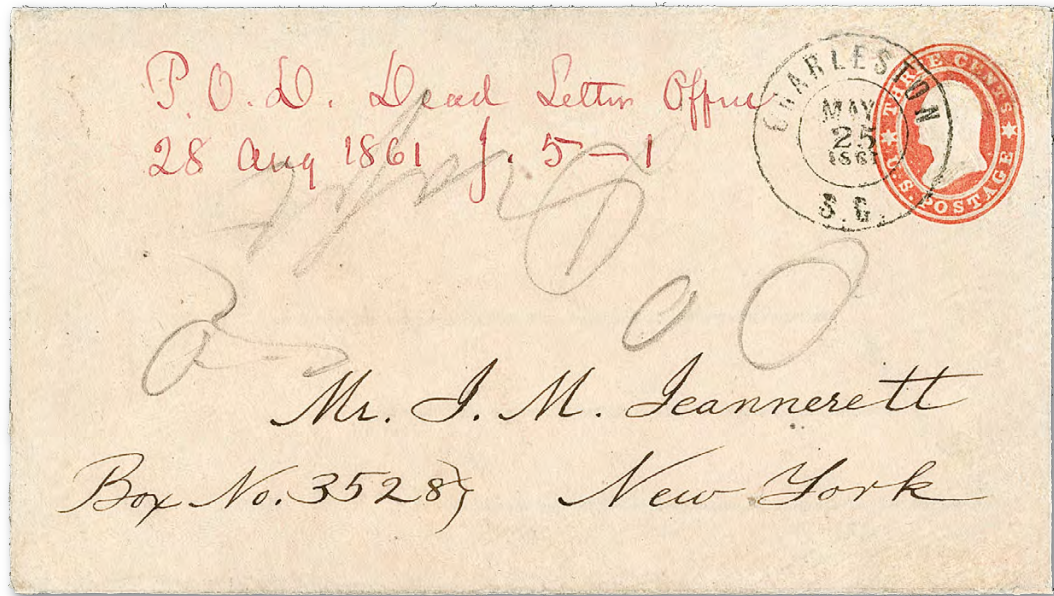 P. O. D. Dead Letter Office
28 Aug 1861 J. 5 - 1
CHARLESTON
MAY
25
1861
S.C.
THREE CENTS
U.S. POSTAGE
Mr. J. M. Jeannerett
Box No. 3528
New York